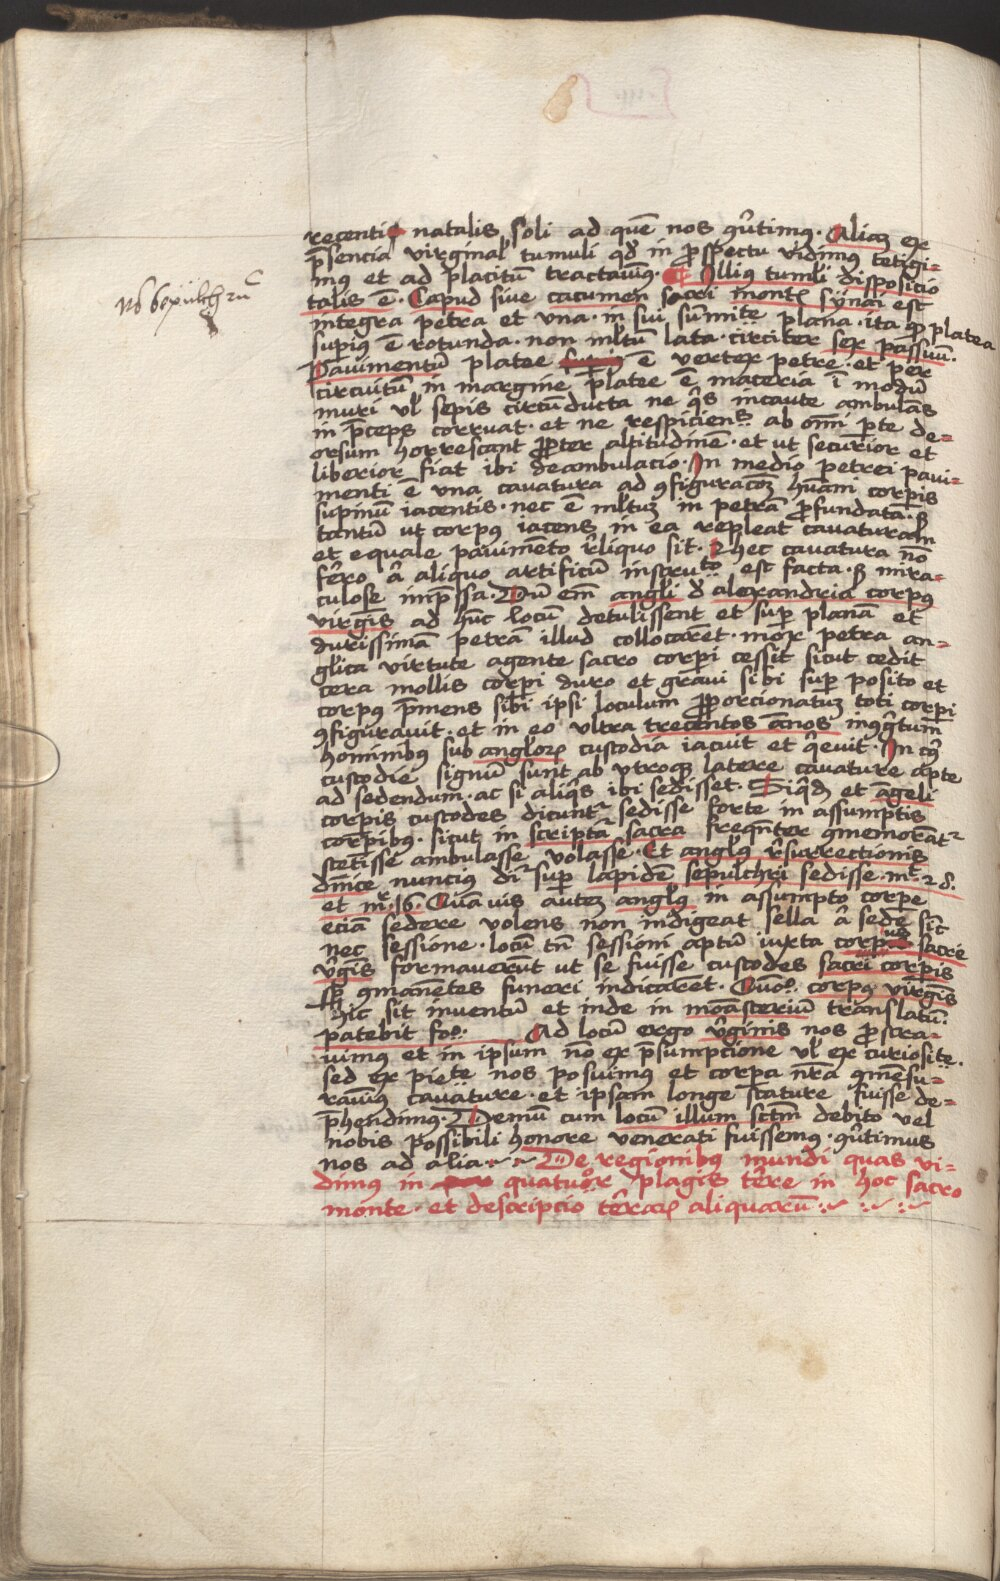 Nb Sepulchrū
recenti natalis soli ad quē nos q̄utimꝰ. Aliaꝫ ex
p̄sencia virginal' tumuli qd' in ꝓspectu vidimꝰ tetigi=
mꝰ et ad placitū tractauimꝰ. Illiꝰ tumuli dispositio
talis ē. Capud siue cacumen sacri montꝭ synai est
integra petra et vna. in sui sūmite plana. ita ꝙ platea
supiꝰ ē rotunda. non ml'tum lata. circiter sex passuū.
Pauimentū platee ē vertex petre. et per
circuitū in margine platee ē maceria ī modū
muri vl' sepis circūducta ne q̄s incaute ambulās
in p̄ceps corruat. et ne respiciens ab om̄i pte de=
orsum horrescant ꝓpter altitudinē. et ut securior et
liberior fiat ibi deambulacio. In medio petrei paui=
menti ē vna cauatura ad ꝯfiguracōꝫ hūani corpꝭis
supinū iacentis. nec ē ml'tuꝫ in petrā ꝓfundata. sꝫ
tantū ut corpꝰ iacens in ea repleat cauaturam
et equale pauimento r̄liquo sit. hec cauatura nō
fer̄o a aliquo artificū instruto est facta. sꝫ mira=
culose imp̄ssa. Dū em̄ angl'i d' alexandria corpꝰ
virgīs ad hūc locū detulissent et sup planā et
durissimā petrā illud collocarēt. mox petra an=
gl'ica virtute agente sacro corpi cessit sicut cedit
cera mollis corpi duro et graui sibi sup posito et
corpꝰ p̄mens sibi ipsi loculum ꝓporcionatuꝫ toti corpi
ꝯfigurauit. et in eo vltra trecentos ānos inꝯg̃tum
hominibꝰ sub angl'oꝝ custodia iacuit et q̄euit. In cꝰ
custodie signū sunt ab vtroqꝫ latere cauature apte
ad sedendum. ac si aliq̄s ibi sedisset. Siq̄dē et angeli
corpis custodes dicunt' sedisse forte in assumptis
corpibꝰ. sicut in scripta sacra freqn̄ter ꝯmemorāt'
stetisse ambulasse volasse. Et angl'ꝰ r̄surrectionis
dn̄ice nuncius di' sup lapidē sepulchri sedisse. mt. 28.
et mr. 16. Quāuis auteꝫ angl'ꝰ in assumpto corpe
eciā sedere volens non indigeat sella a sede sic̄
nec sessione. locū tn̄ sessioni aptū iuxta corpus sacre
v̄gīs formauerūt ut se fuisse custodes sacri corpis
sp ꝯmanētes funeri indicarēt. Quōº. corpꝰ virgīs
hic sit inuentū et inde in monasteriū translatū.
patebit foº. Ad locū ergo v̄ginis nos ꝓstra=
uimꝰ et in ipsum nō ex p̄sumpcione vl' ex curiosite.
sed ex piete nos posuimꝰ et corpa nr̄a ꝯmēsu=
rauimꝰ cauature. et ipsam longe stature fuisse de=
p̄hendimꝰ. Demū cum locū illum sctm̄ debito vel
nobis possibili honore venerati fuissemꝰ. q̄utimus
nos ad alia. De regionibꝰ mundi quas vi=
dimꝰ in quatuor plagis tēre in hoc sacro
monte. et descripcio tēraꝝ aliquarū